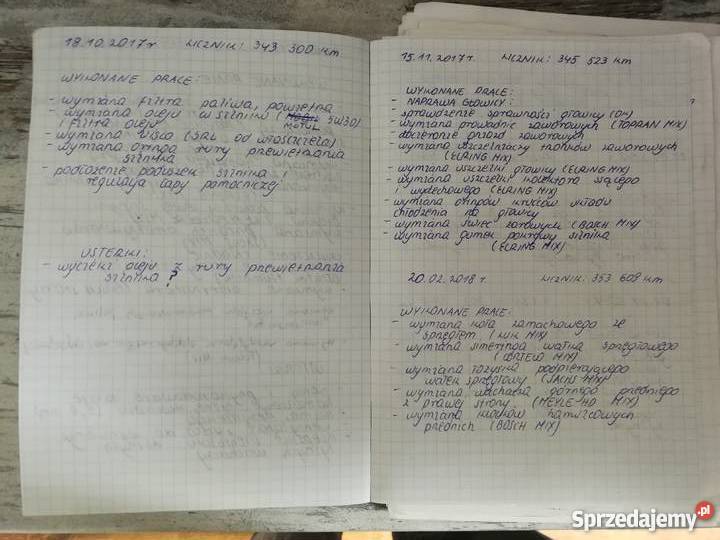 18.10.2017r LICZNIK: 343 300 km
WYKONANE PRACE:
- wymiana filtra paliwa, powietrza
- wymiana oleju w silniku ( 5W30)
i filtra oleju MOTUL
- wymiana (SRL od właściciela)
- wymiana oringa rury przewietrzania
silnika
- podłożenie poduszek silnika i
regulacja łapy pomocniczej
USTERKI:
- wycieki oleju z rury przewietrzania
silnika?
15.11.2017r. LICZNIK: 345 523 km
WYKONANE PRACE:
- NAPRAWA GŁOWICY:
- sprawdzenie sprawności głowicy (OK)
- wymiana prowadnic zaworowych (TOPRAN MIX)
- dotarcie gniazd zaworowych
- wymiana uszczelniaczy trzonków zaworowych
(ELRING MIX)
- wymiana uszczelki głowicy (ELRING MIX)
- wymiana uszczelki kolektora ssącego
i wydechowego (ELRING MIX)
- wymiana oringów króćców układu
chłodzenia na głowicy
- wymiana świec żarowych (BOSCH MIX)
- wymiana gumek pokrywy silnika
(ELRING MIX)
20.02.2018 r. LICZNIK: 353 609 km
WYKONANE PRACE:
- wymiana koła zamachowego ze
sprzęgłem (LUK MIX)
- wymiana simeringa wałka sprzęgłowego
(CORTECO MIX)
- wymiana łożyska podpierającego
wałek sprzęgłowy (SACHS MIX)
- wymiana wahacza górnego przedniego
z prawej strony (MEYLE-HD MIX)
- wymiana klocków hamulcowych
przednich (BOSCH MIX)
Sprzedajemy.pl